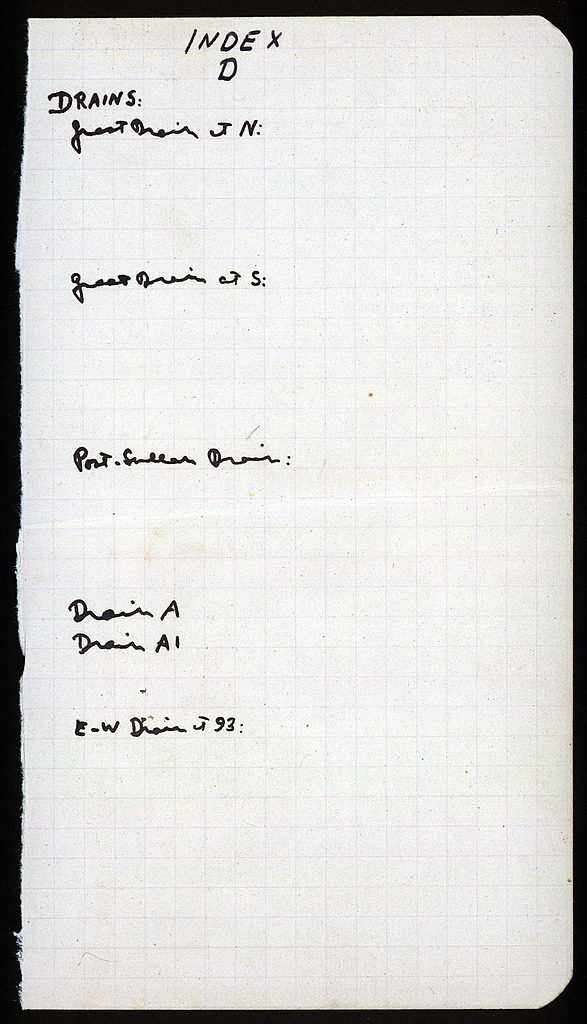 INDEX
D
DRAINS:
Great Drain at N:
Great Drain at S:
Post-Sullan Drain:
Drain A
Drain A1
E-W Drain at 93: